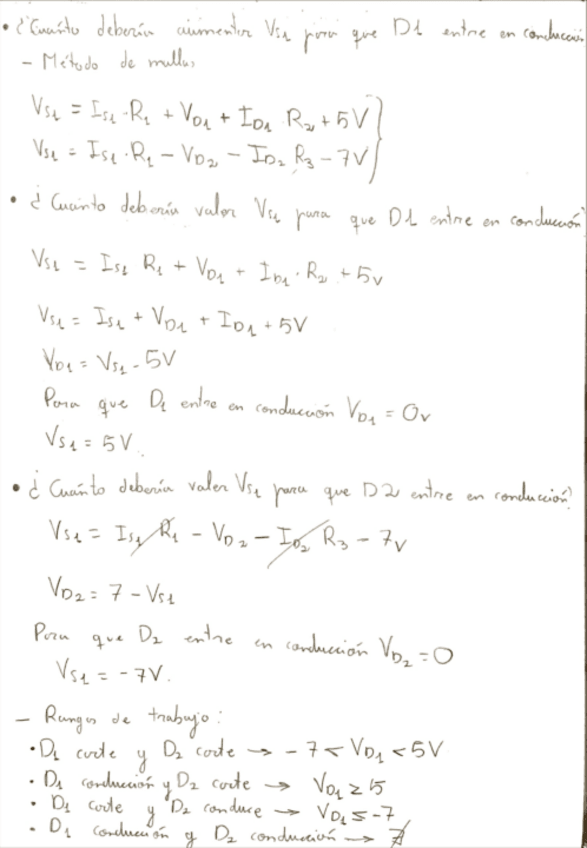 • ¿Cuánto debería aumentar Vs1 para que D1 entre en conducción
- Método de mallas
Vs1 = Is1·R1 + VD1 + ID1 R2 + 5V
Vs1 = Is1·R1 - VD2 - ID2 R3 - 7V
• ¿Cuánto debería valer Vs1 para que D1 entre en conducción?
Vs1 = Is1 R1 + VD1 + ID1·R2 + 5V
Vs1 = Is1 + VD1 + ID1 + 5V
VD1 = Vs1 - 5V
Para que D1 entre en conducción VD1 = 0v
Vs1 = 5V.
• ¿Cuánto debería valer Vs1 para que D2 entre en conducción?
Vs1 = Is1 R1 - VD2 - ID2 R3 - 7V
VD2 = 7 - Vs1
Para que D2 entre en conducción VD2 = 0
Vs1 = -7V.
- Rangos de trabajo:
• D1 corte y D2 corte → -7 < VD1 < 5V
• D1 conducción y D2 corte → VD1 ≥ 5
• D1 corte y D2 conduce → VD1 ≤ -7
• D1 conducción y D2 conducción → ∄